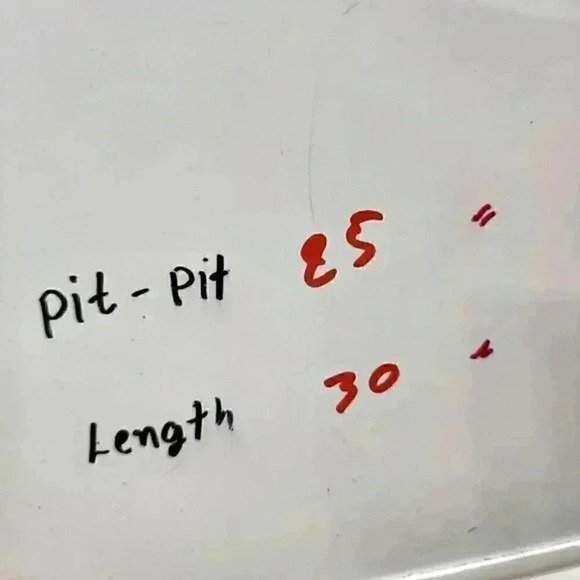 Pit - Pit 25 "
Length 30 "